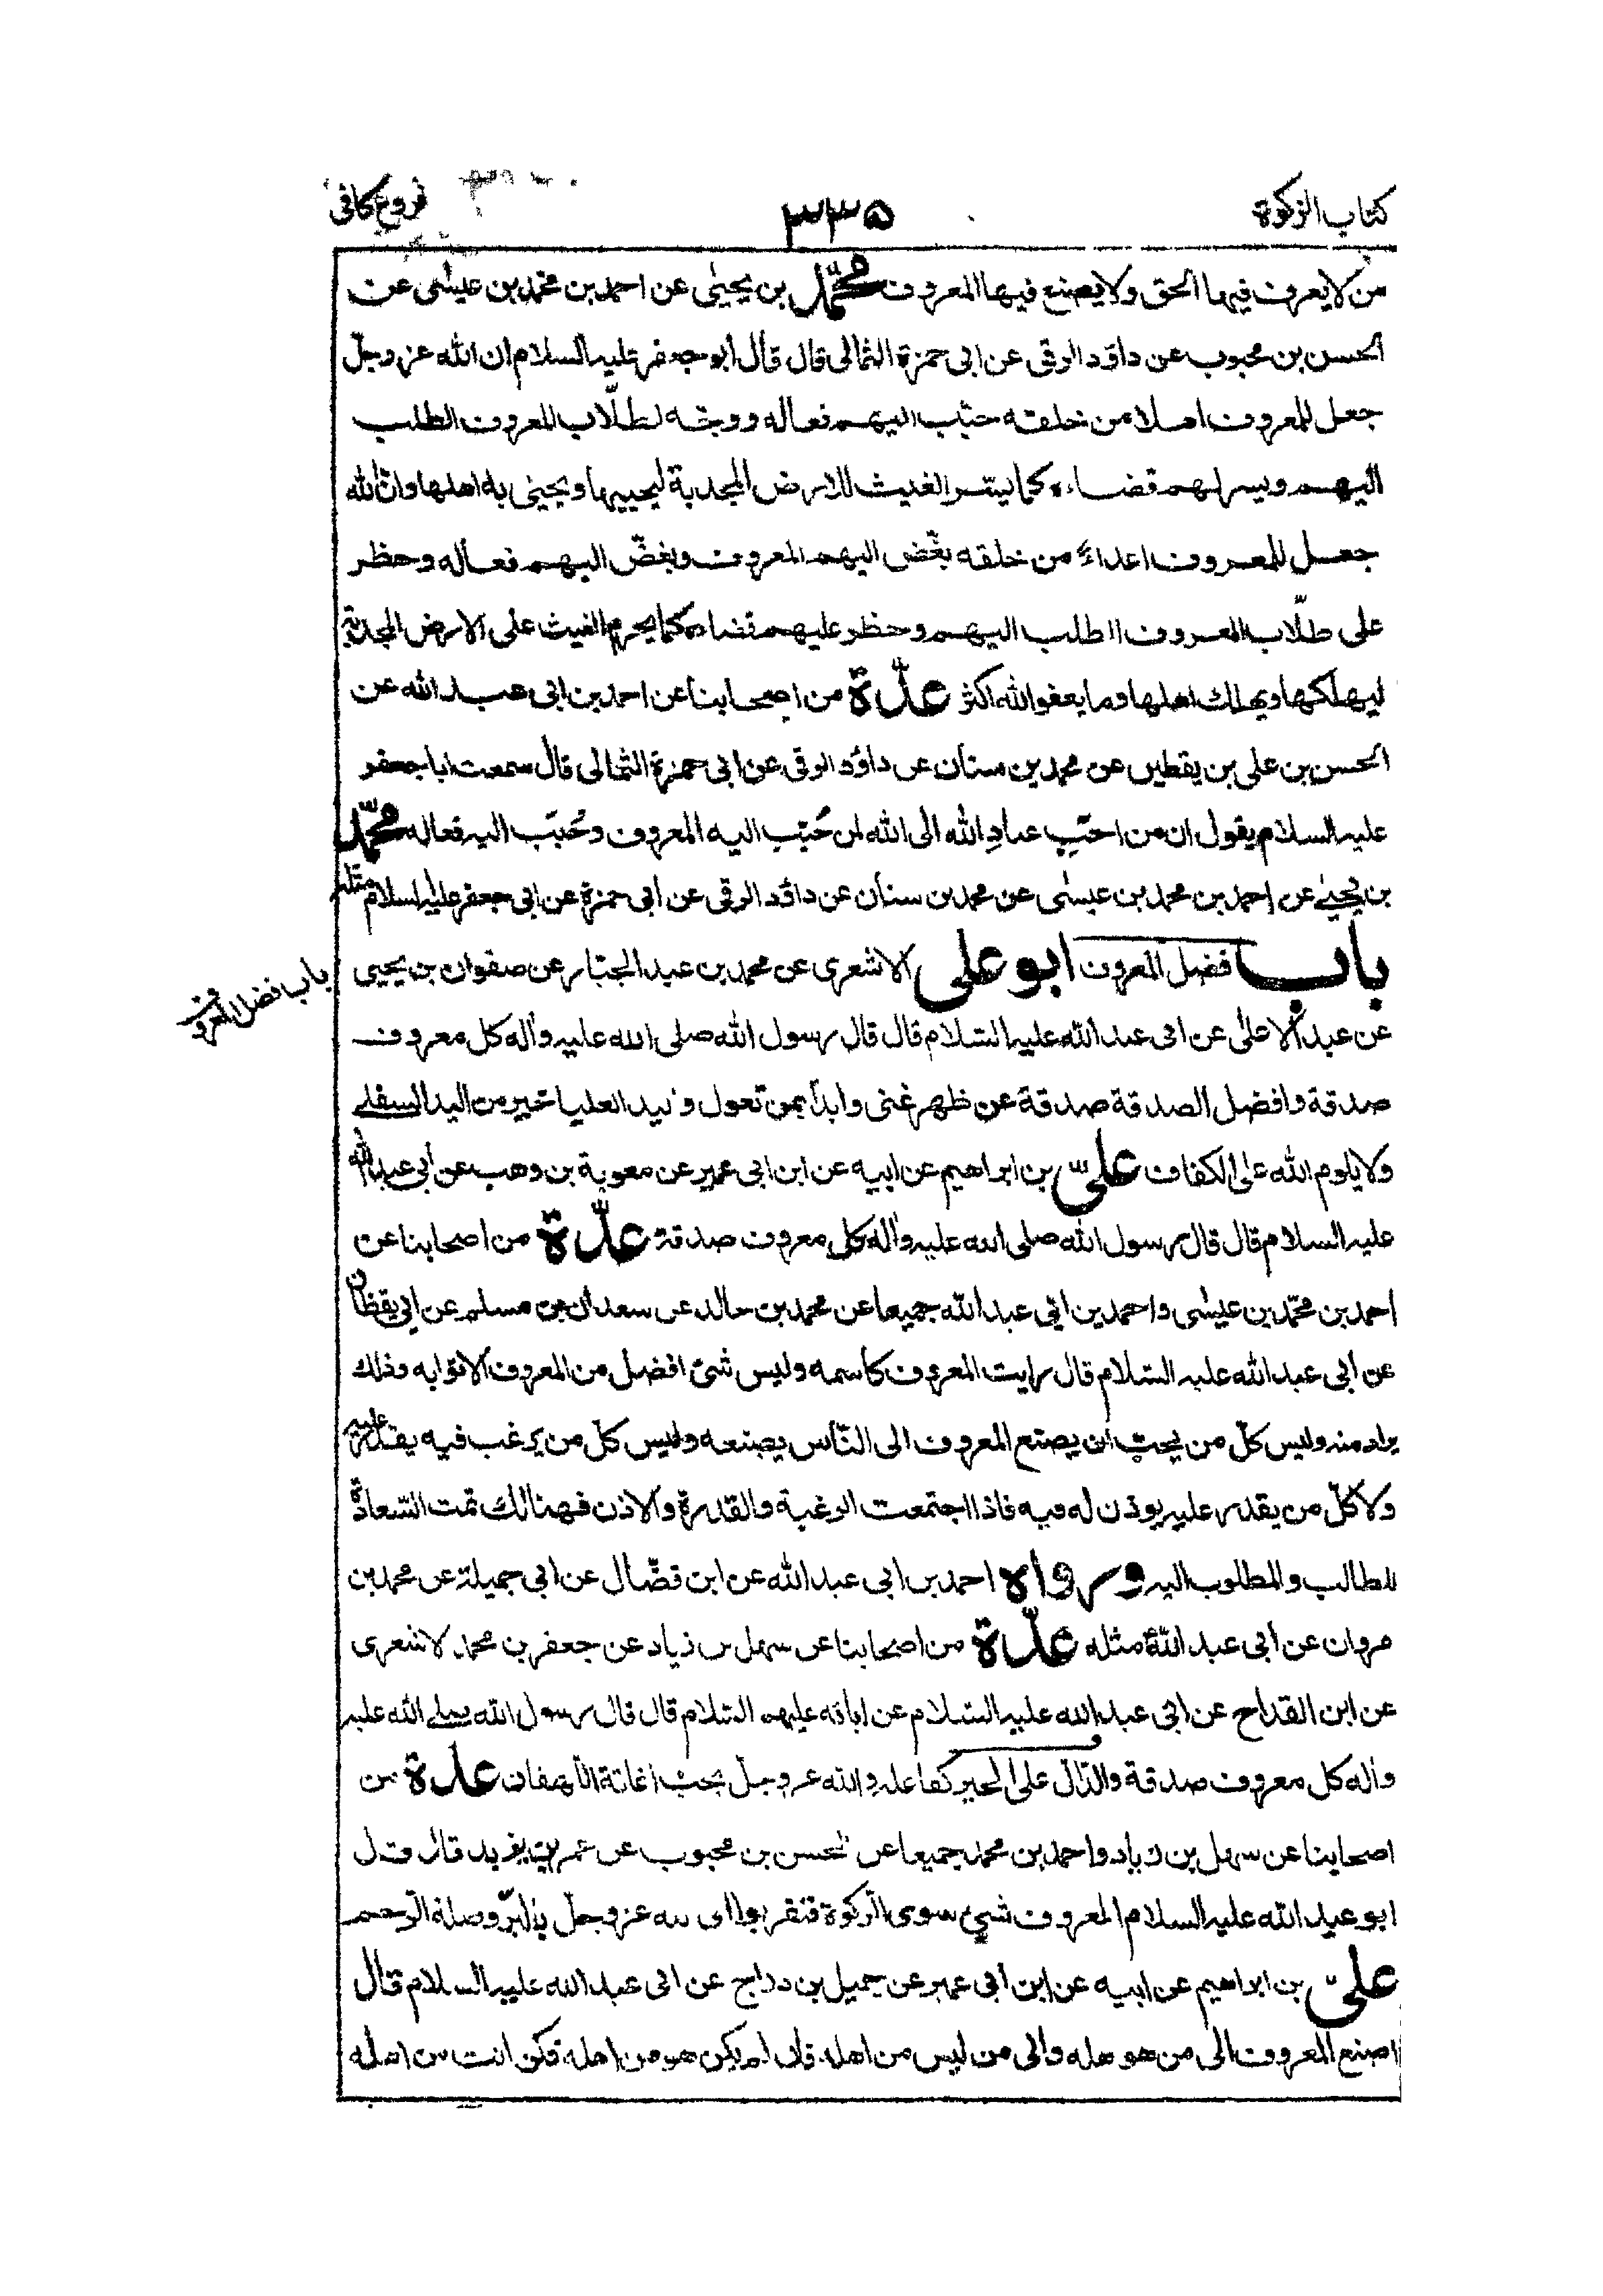 كتاب الزكوة
٣٣٥
فروع كافى
من لا يعرف فيها الحق ولا يصنع فيها المعروف محمّد بن يحيى عن احمد بن محمد بن عيسى عن
الحسن بن محبوب عن داؤد الرقى عن ابى حمزة الثمالى قال قال ابو جعفر عليه السلام ان الله عز وجلّ
جعل للمعروف اهلا من خلقه حبّب اليهم فعاله ووجّه لطلّاب المعروف الطلب
اليهم ويسر لهم قضاءه كما ييسّر الغيث للارض المجدبة ليحييها ويحيى به اهلها وان الله
جعل للمعروف اعداءً من خلقه بغّض اليهم المعروف وبغّض اليهم فعاله وحظر
على طلّاب المعروف الطلب اليهم وحظر عليهم قضاه كما يحرم الغيث على الارض المجدبة
ليهلكها ويهلك اهلها وما يعفو الله اكثر عدّة من اصحابنا عن احمد بن ابى عبد الله عن
الحسن بن على بن يقطين عن محمد بن سنان عن داؤد الرقى عن ابى حمزة الثمالى قال سمعت ابا جعفر
عليه السلام يقول ان من احبّ عباد الله الى الله لمن حُبّب اليه المعروف وحُبّب اليه فعاله محمّد
بن يحيى عن احمد بن محمد بن عيسى عن محمد بن سنان عن داؤد الرقى عن ابى حمزة عن ابى جعفر عليه السلام مثله
باب فضل المعروف ابو على الاشعرى عن محمد بن عبد الجبّار عن صفوان بن يحيى
باب فضل المعروف
عن عبد الاعلى عن ابى عبد الله عليه السّلام قال قال رسول الله صلى الله عليه واٰله كل معروف
صدقة وافضل الصدقة صدقة عن ظهر غنى وابدأ بمن تعول واليد العليا خير من اليد السفلے
ولا يلوم الله على الكفاف علىّ بن ابراهيم عن ابيه عن ابن ابى عمير عن معوية بن وهب عن أبى عبد الله
عليه السلام قال قال رسول الله صلى الله عليه واٰله كل معروف صدقة عدّة من اصحابنا عن
احمد بن محمّد بن عيسى واحمد بن ابى عبد الله جميعا عن محمد بن خالد عن سعدان بن مسلم عن ابى يقظان
عن أبى عبد الله عليه السّلام قال رايت المعروف كاسمه وليس شئ افضل من المعروف الا ثوابه وذلك
يراد منه وليس كلّ من يحبّ ان يصنع المعروف الى النّاس يصنعه وليس كلّ من يرغب فيه يقدر عليه
ولا كلّ من يقدر عليه يوذن له فيه فاذا اجتمعت الرغبة والقدرة والاذن فهنالك تمت السّعادة
للطالب والمطلوب اليه ورواه احمد بن ابى عبد الله عن ابن فضّال عن ابى جميلة عن محمد بن
مروان عن أبى عبد الله مثله عدّة من اصحابنا عن سهل بن زياد عن جعفر بن محمد الاشعرى
عن ابن القداح عن ابى عبد الله عليه السّلام عن اٰبائه عليهم السّلام قال قال رسول الله صلے الله عليه
واٰله كل معروف صدقة والدّال على الخير كفاعله والله عز وجلّ يحب اغاثة اللّهفان عدّة من
اصحابنا عن سهل بن زياد واحمد بن محمد جميعا عن الحسن بن محبوب عن عمر بن يزيد قال قال
ابو عبد الله عليه السلام المعروف شىء سوى الزكوة فتقربوا الى الله عز وجلّ بالبرّ وصلة الرّحم
علىّ بن ابراهيم عن ابيه عن ابن أبى عمير عن جميل بن دراج عن ابى عبد الله عليه السلام قال
اصنع المعروف الى من هو اهله والى من ليس من اهله فان لم يكن هو من اهله فكن انت من اهله